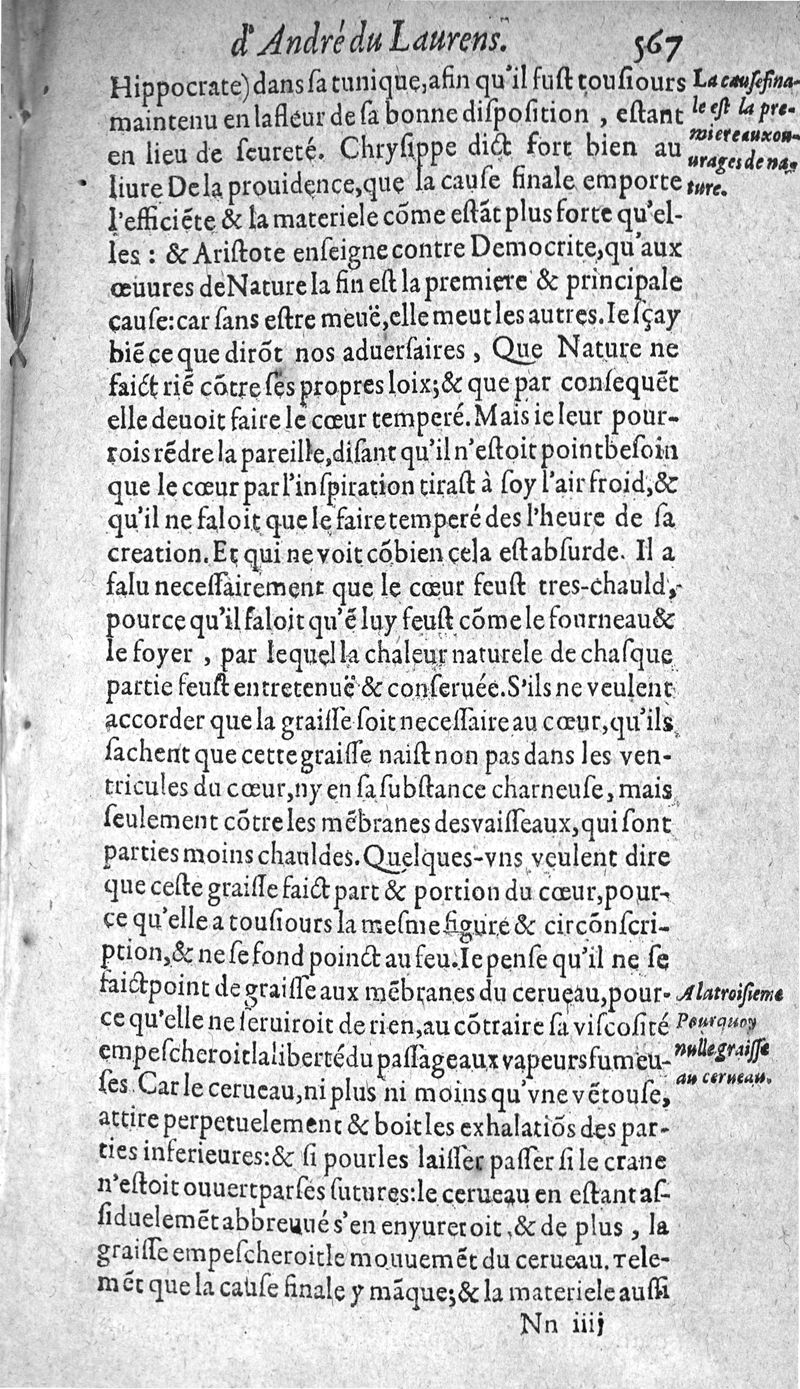 d'André du Laurens. 567
Hippocrate) dans sa tunique, afin qu'il fust tousiours
maintenu en la fleur de sa bonne disposition, estant
en lieu de seureté. Chrysippe dict fort bien au
liure De la prouidence, que la cause finale emporte
l'efficiẽte & la materiele cõme estãt plus forte qu'el-
les : & Aristote enseigne contre Democrite, qu'aux
œuures de Nature la fin est la premiere & principale
cause: car sans estre meuë, elle meut les autres. Ie sçay
biẽ ce que dirõt nos aduersaires, Que Nature ne
faict riẽ cõtre ses propres loix; & que par consequẽt
elle deuoit faire le cœur temperé. Mais ie leur pour-
rois rẽdre la pareille, disant qu'il n'estoit point besoin
que le cœur par l'inspiration tirast à soy l'air froid, &
qu'il ne faloit que le faire temperé des l'heure de sa
creation. Et qui ne voit cõbien cela est absurde. Il a
falu necessairement que le cœur feust tres-chauld,
pource qu'il faloit qu'ẽ luy feust cõme le fourneau &
le foyer, par lequel la chaleur naturele de chasque
partie feust entretenuë & conseruée. S'ils ne veulent
accorder que la graisse soit necessaire au cœur, qu'ils
sachent que cette graisse naist non pas dans les ven-
tricules du cœur, ny en sa substance charneuse, mais
seulement cõtre les mẽbranes des vaisseaux, qui sont
parties moins chauldes. Quelques-vns veulent dire
que ceste graisse faict part & portion du cœur, pour-
ce qu'elle a tousiours la mesme figure & circõnscri-
ption, & ne se fond poinct au feu. Ie pense qu'il ne se
faict point de graisse aux mẽbranes du cerueau, pour-
ce qu'elle ne seruiroit de rien, au cõtraire sa viscosité
empescheroit la liberté du passage aux vapeurs fumeu-
ses. Car le cerueau, ni plus ni moins qu'vne vẽtouse,
attire perpetuelement & boit les exhalatiõs des par-
ties inferieures: & si pour les laisser passer si le crane
n'estoit ouuert par ses sutures: le cerueau en estant as-
siduelemẽt abbreuué s'en enyureroit, & de plus, la
graisse empescheroit le mouuemẽt du cerueau. Tele-
mẽt que la cause finale y mãque; & la materiele aussi
Nn iiij
La cause fina-
le est la pre-
miere aux ou-
urages de na-
ture.
A la troisieme
Pourquoy
nulle graisse
au cerueau.